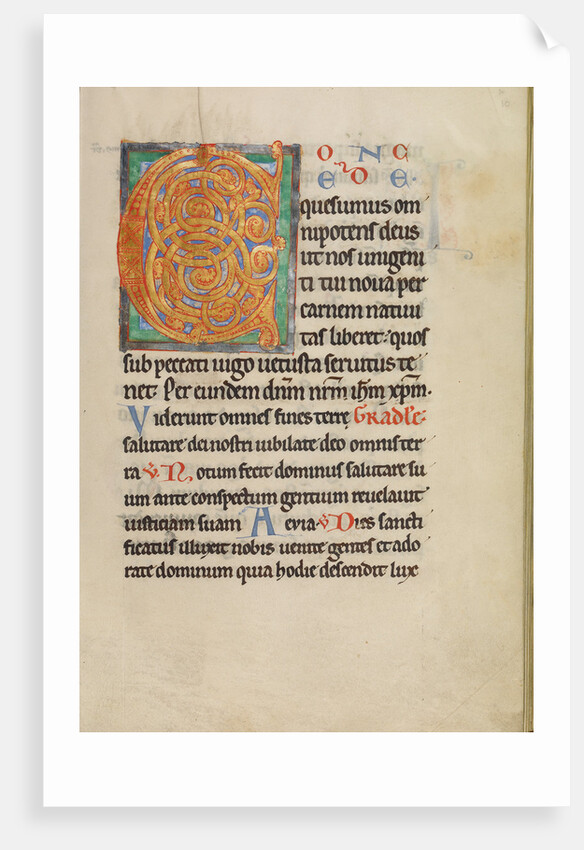 C ONC
EDE·
quesumus om
nipotens deus
ut nos unigeni
ti tui noua per
carnem natiui
tas liberet: quos
sub peccati iugo uetusta seruitus te
net. Per eundem dnm nrm ihm xpm.
Viderunt omnes fines terrę Gradle.
salutare dei nostri iubilate deo omnis ter
ra V Notum fecit dominus salutare su
um ante conspectum gentium reuelauit
iusticiam suam Aeuia. V Dies sancti
ficatus illuxit nobis uenite gentes et ado
rate dominum quia hodie descendit lux